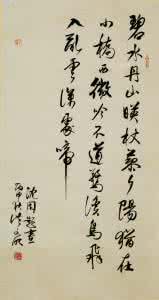 碧水丹山暎杖藜夕陽猶在
小橋西微吟不道驚溪鳥飛
入亂雲深處啼
沈周題畫